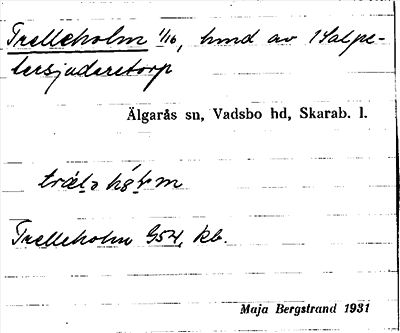 Trelleholm 1/16, hmd av 1 Salpe-
tersjuderetorp
Älgarås sn, Vadsbo hd, Skarab. l.
Trelleholm 954, kb.
Maja Bergstrand 1931